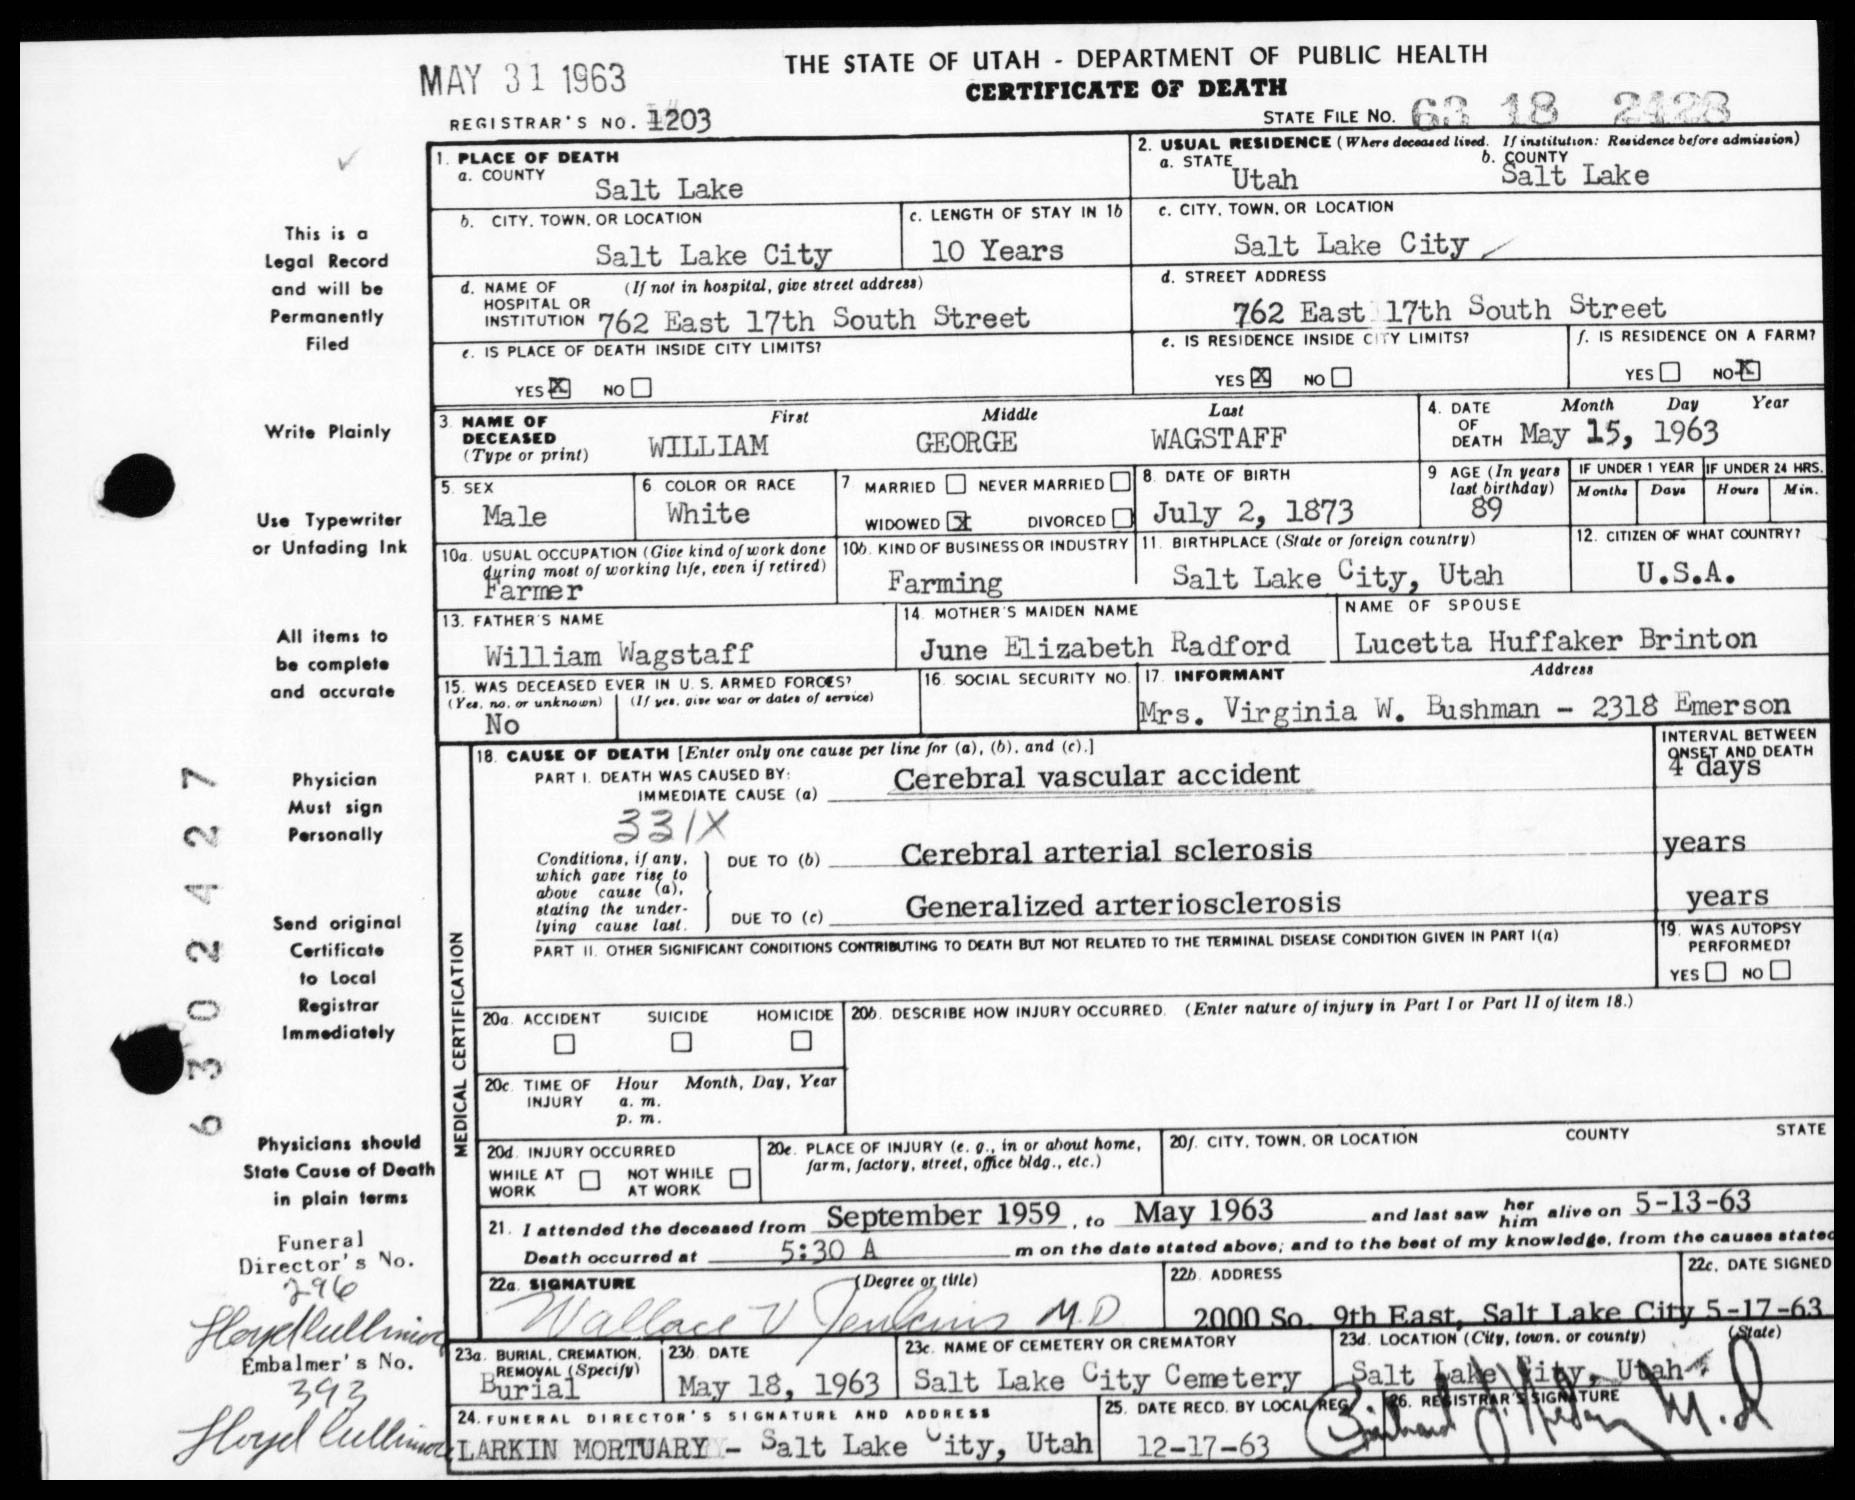 THE STATE OF UTAH - DEPARTMENT OF PUBLIC HEALTH
MAY 31 1963
CERTIFICATE OF DEATH
REGISTRAR'S NO. 1203
STATE FILE NO. 63 18 2428
This is a
Legal Record
and will be
Permanently
Filed
Write Plainly
Use Typewriter
or Unfading Ink
All items to
be complete
and accurate
Physician
Must sign
Personally
Send original
Certificate
to Local
Registrar
Immediately
Physicians should
State Cause of Death
in plain terms
Funeral
Director's No.
296
Embalmer's No.
393
6302427
1. PLACE OF DEATH
a. COUNTY
Salt Lake
2. USUAL RESIDENCE (Where deceased lived. If institution: Residence before admission)
a. STATE
Utah
b. COUNTY
Salt Lake
b. CITY, TOWN, OR LOCATION
Salt Lake City
c. LENGTH OF STAY IN 1b
10 Years
c. CITY, TOWN, OR LOCATION
Salt Lake City
d. NAME OF (If not in hospital, give street address)
HOSPITAL OR
INSTITUTION 762 East 17th South Street
d. STREET ADDRESS
762 East 17th South Street
e. IS PLACE OF DEATH INSIDE CITY LIMITS?
YES X NO
e. IS RESIDENCE INSIDE CITY LIMITS?
YES X NO
f. IS RESIDENCE ON A FARM?
YES NO X
3. NAME OF First Middle Last
DECEASED
(Type or print) WILLIAM GEORGE WAGSTAFF
4. DATE Month Day Year
OF
DEATH May 15, 1963
5. SEX
Male
6 COLOR OR RACE
White
7 MARRIED NEVER MARRIED
WIDOWED X DIVORCED
8. DATE OF BIRTH
July 2, 1873
9 AGE (In years
last birthday)
89
IF UNDER 1 YEAR
Months Days
IF UNDER 24 HRS.
Hours Min.
10a. USUAL OCCUPATION (Give kind of work done
during most of working life, even if retired)
Farmer
10b. KIND OF BUSINESS OR INDUSTRY
Farming
11. BIRTHPLACE (State or foreign country)
Salt Lake City, Utah
12. CITIZEN OF WHAT COUNTRY?
U.S.A.
13. FATHER'S NAME
William Wagstaff
14. MOTHER'S MAIDEN NAME
June Elizabeth Radford
NAME OF SPOUSE
Lucetta Huffaker Brinton
15. WAS DECEASED EVER IN U. S. ARMED FORCES?
(Yes, no, or unknown) (If yes, give war or dates of service)
No
16. SOCIAL SECURITY NO.
17. INFORMANT Address
Mrs. Virginia W. Bushman - 2318 Emerson
MEDICAL CERTIFICATION
18. CAUSE OF DEATH [Enter only one cause per line for (a), (b), and (c).]
INTERVAL BETWEEN
ONSET AND DEATH
PART I. DEATH WAS CAUSED BY:
IMMEDIATE CAUSE (a) Cerebral vascular accident
4 days
331X
Conditions, if any,
which gave rise to
above cause (a),
stating the under-
lying cause last.
DUE TO (b) Cerebral arterial sclerosis
years
DUE TO (c) Generalized arteriosclerosis
years
PART II. OTHER SIGNIFICANT CONDITIONS CONTRIBUTING TO DEATH BUT NOT RELATED TO THE TERMINAL DISEASE CONDITION GIVEN IN PART I(a)
19. WAS AUTOPSY
PERFORMED?
YES NO
20a. ACCIDENT SUICIDE HOMICIDE
20b. DESCRIBE HOW INJURY OCCURRED. (Enter nature of injury in Part I or Part II of item 18.)
20c. TIME OF Hour Month, Day, Year
INJURY a. m.
p. m.
20d. INJURY OCCURRED
WHILE AT NOT WHILE
WORK AT WORK
20e. PLACE OF INJURY (e. g., in or about home,
farm, factory, street, office bldg., etc.)
20f. CITY, TOWN, OR LOCATION COUNTY STATE
21. I attended the deceased from September 1959, to May 1963 and last saw her him alive on 5-13-63
Death occurred at 5:30 A m on the date stated above; and to the best of my knowledge, from the causes stated
22a. SIGNATURE (Degree or title)
Wallace V Jenkins M.D.
22b. ADDRESS
2000 So. 9th East, Salt Lake City
22c. DATE SIGNED
5-17-63
23a. BURIAL, CREMATION,
REMOVAL (Specify)
Burial
23b. DATE
May 18, 1963
23c. NAME OF CEMETERY OR CREMATORY
Salt Lake City Cemetery
23d. LOCATION (City, town, or county) (State)
Salt Lake City, Utah
24. FUNERAL DIRECTOR'S SIGNATURE AND ADDRESS
LARKIN MORTUARY - Salt Lake City, Utah
25. DATE RECD. BY LOCAL REG.
12-17-63
26. REGISTRAR'S SIGNATURE
M.d